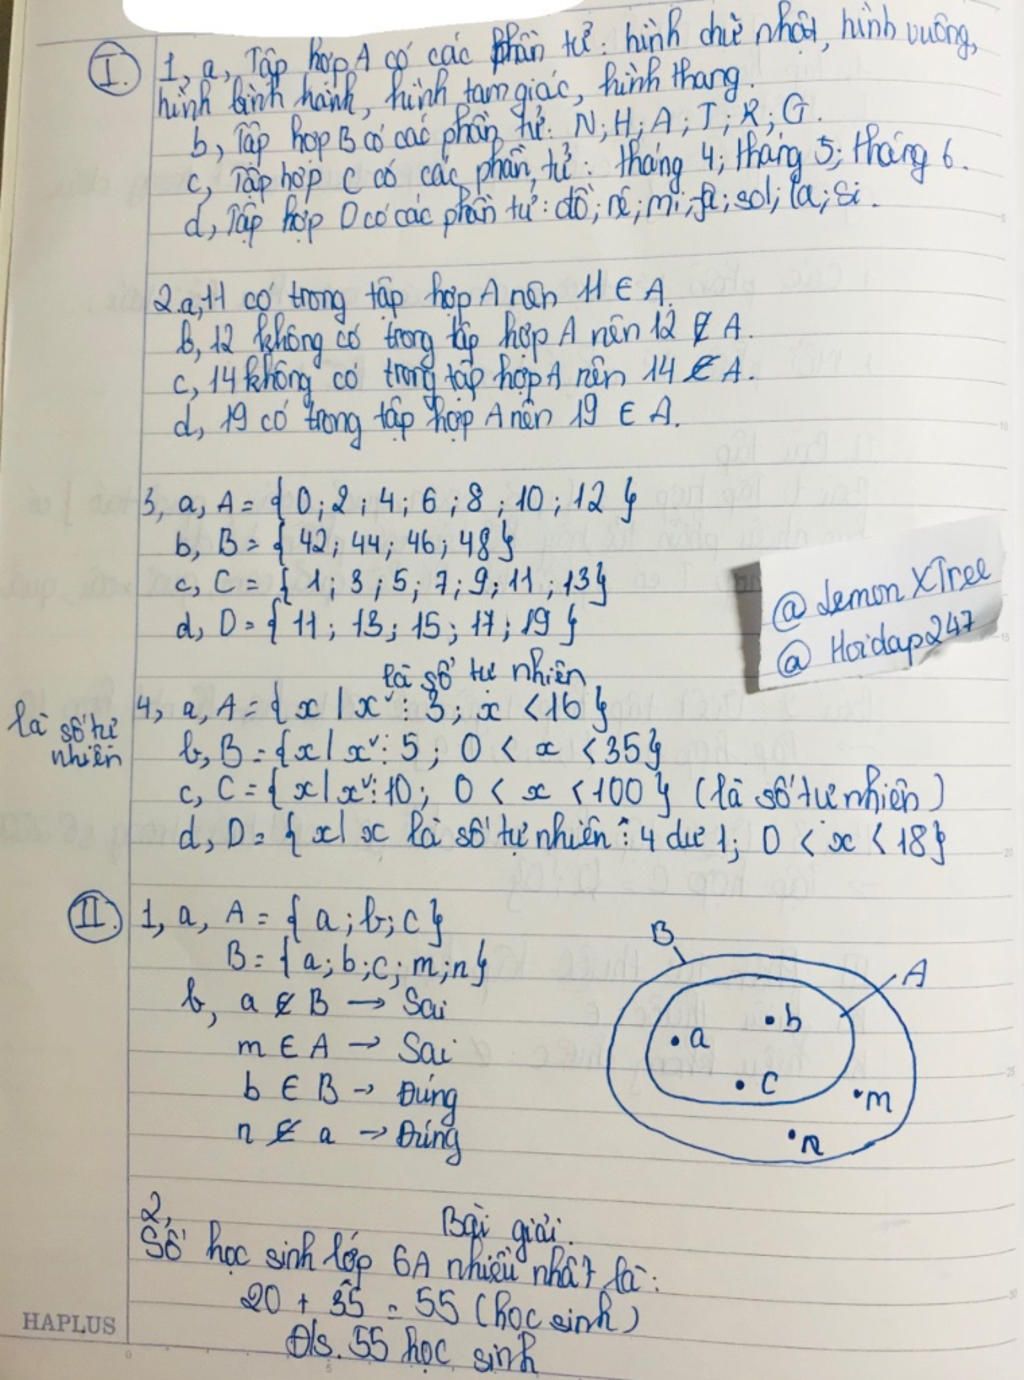 I. 1, a, Tập hợp A có các phần tử: hình chữ nhật, hình vuông,
hình bình hành, hình tam giác, hình thang.
b, Tập hợp B có các phần tử: N; H; A; T; R; G.
c, Tập hợp C có các phần tử: tháng 4; tháng 5; tháng 6.
d, Tập hợp D có các phần tử: đồ; rê; mi; fa; sol; la; si.
2.a, 11 có trong tập hợp A nên 11 ∈ A.
b, 12 không có trong tập hợp A nên 12 ∉ A.
c, 14 không có trong tập hợp A nên 14 ∉ A.
d, 19 có trong tập hợp A nên 19 ∈ A.
3, a, A = { 0; 2; 4; 6; 8; 10; 12 }
b, B = { 42; 44; 46; 48 }
c, C = { 1; 3; 5; 7; 9; 11; 13 }
d, D = { 11; 13; 15; 17; 19 }
@ Lemon XTree
@ Hoidap247
là số tự nhiên
4, a, A = { x | x ⋮ 3; x < 16 }
là số tự
nhiên
b, B = { x | x ⋮ 5; 0 < x < 35 }
c, C = { x | x ⋮ 10; 0 < x < 100 } (là số tự nhiên)
d, D = { x | x là số tự nhiên : 4 dư 1; 0 < x < 18 }
II. 1, a, A = { a; b; c }
B = { a; b; c; m; n }
b, a ∉ B → Sai
m ∈ A → Sai
b ∈ B → Đúng
n ∉ a → Đúng
B
A
b
a
c
m
n
2,
Bài giải.
Số học sinh lớp 6A nhiều nhất là:
20 + 35 = 55 (học sinh)
Đ/s. 55 học sinh
HAPLUS